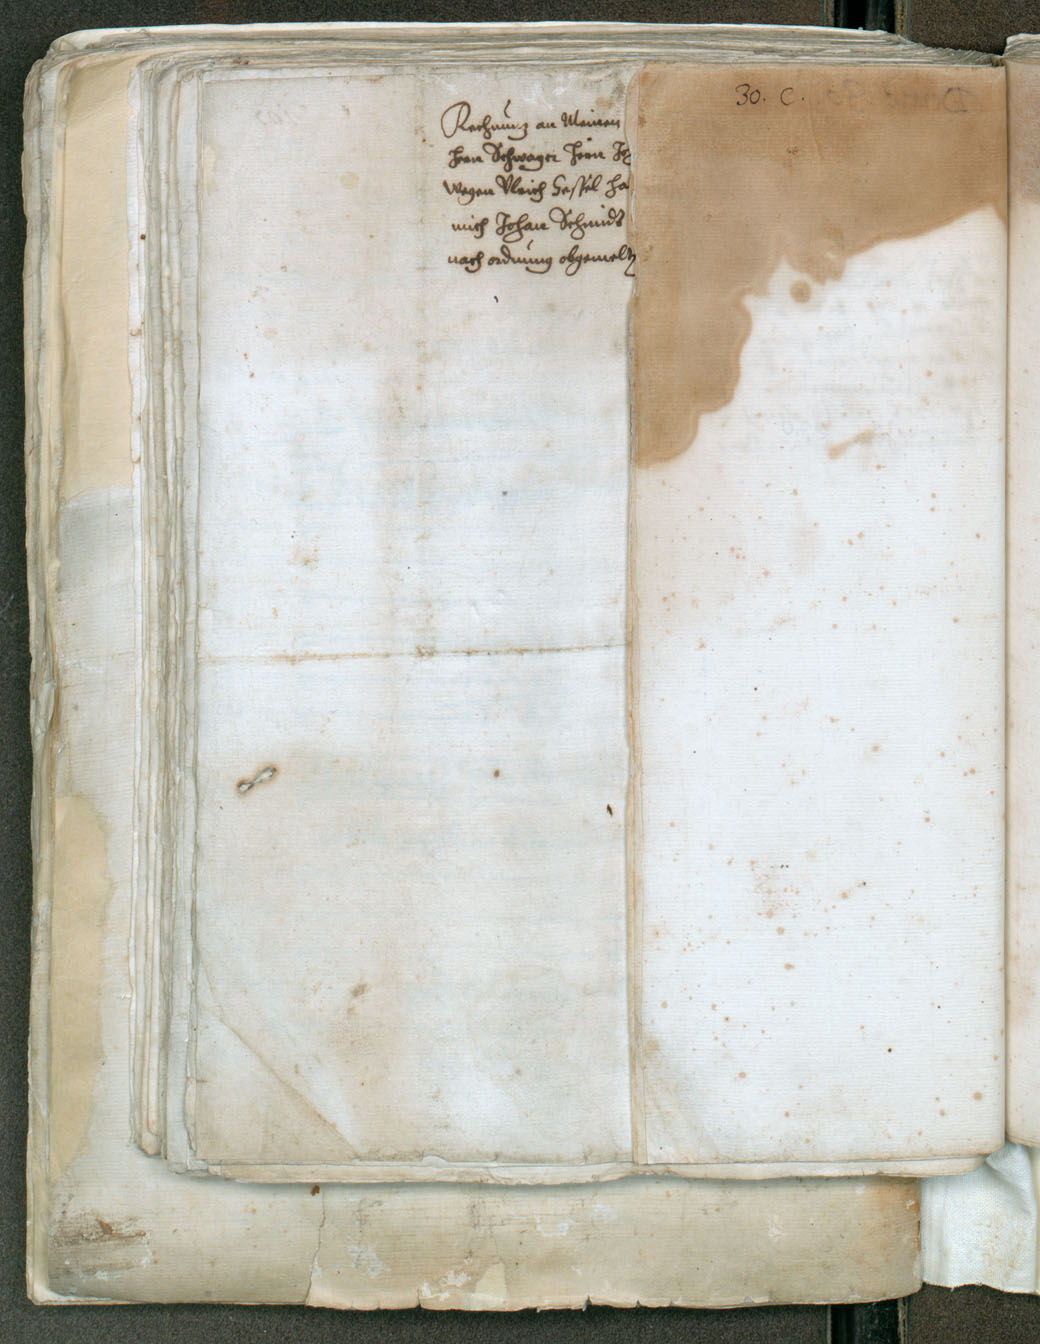 30. C.
Rechnung an Meinen
hern Schwager hern Jo
wegen Vlrich Gessel ha
mich Johan Schmidt
nach ordnung obgemelt